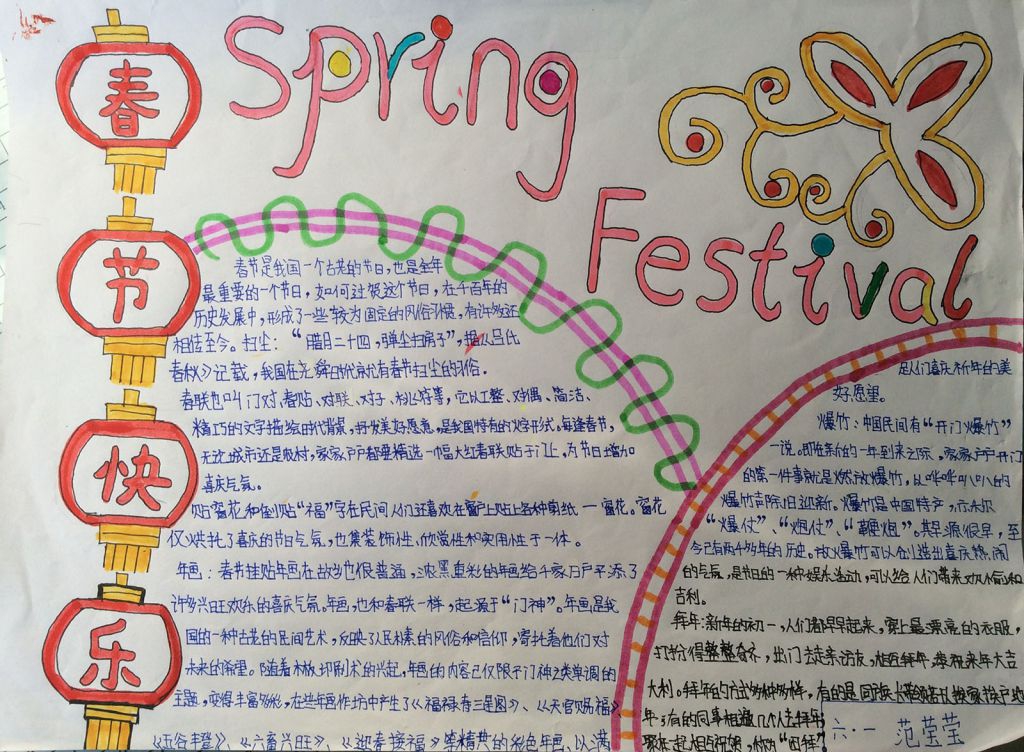 春
节
快
乐
Spring
Festival
春节是我国一个古老的节日，也是全年
最重要的一个节日，如何过贺这个节日，在千百年的
历史发展中，形成了一些较为固定的风俗习惯，有许多还
相传至今。扫尘：“腊月二十四，掸尘扫房子”，据《吕氏
春秋》记载，我国在尧舜时代就有春节扫尘的风俗。
春联也叫门对、春贴、对联、对子、桃符等，它以工整、对偶、简洁、
精巧的文字描绘时代背景，抒发美好愿意，是我国特有的文学形式。每逢春节，
无论城市还是农村，家家户户都要精选一幅大红春联贴于门上。为节日增加
喜庆气氛。
贴窗花和倒贴“福”字在民间人们还喜欢在窗户上贴上各种剪纸——窗花。窗花
仅烘托了喜庆的节日气氛，也集装饰性、欣赏性和实用性于一体。
年画：春节挂贴年画在故乡也很普遍，浓黑重彩的年画给千家万户平添了
许多兴旺欢乐的喜庆气氛。年画，也和春联一样，起源于“门神”。年画是我
国的一种古老的民间艺术，反映了人民朴素的风俗和信仰，寄托着他们对
未来的希望。随着木板印刷术的兴起，年画的内容已仅限于门神之类单调的
主题，变得丰富多彩，在些年画作坊中产生了《福禄寿三星图》、《天官赐福》
《五谷丰登》、《六畜兴旺》、《迎春接福》等精典的彩色年画、以满
足人们喜庆祈年的美
好愿望。
爆竹：中国民间有“开门爆竹”
一说，即在新的一年到来之际，家家户户开门
的第一件事就是燃放爆竹，以哔哔叭叭的
爆竹声除旧迎新。爆竹是中国特产，亦称
“爆仗”、“炮仗”、“鞭炮”。其早源很早，至
今已有两千多年的历史。放爆竹可以创造出喜庆热闹
的气氛，是节日的一种娱乐活动，可以给人们带来欢愉和
吉利。
拜年：新年的初一，人们都早早起来，穿上最漂亮的衣服，
打扮得整整齐齐，出门去走亲访友，相互拜年，恭祝来年大吉
大利。拜年的方式多种多样，有的是同族长带领若干人挨家挨户地
年；有的同事相邀几个人去拜年
六·一 范莹莹